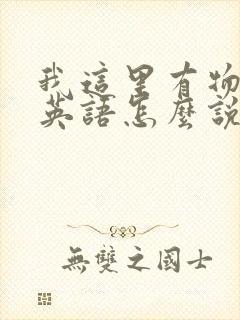 我這里有物
英語怎麼說
無雙之國士